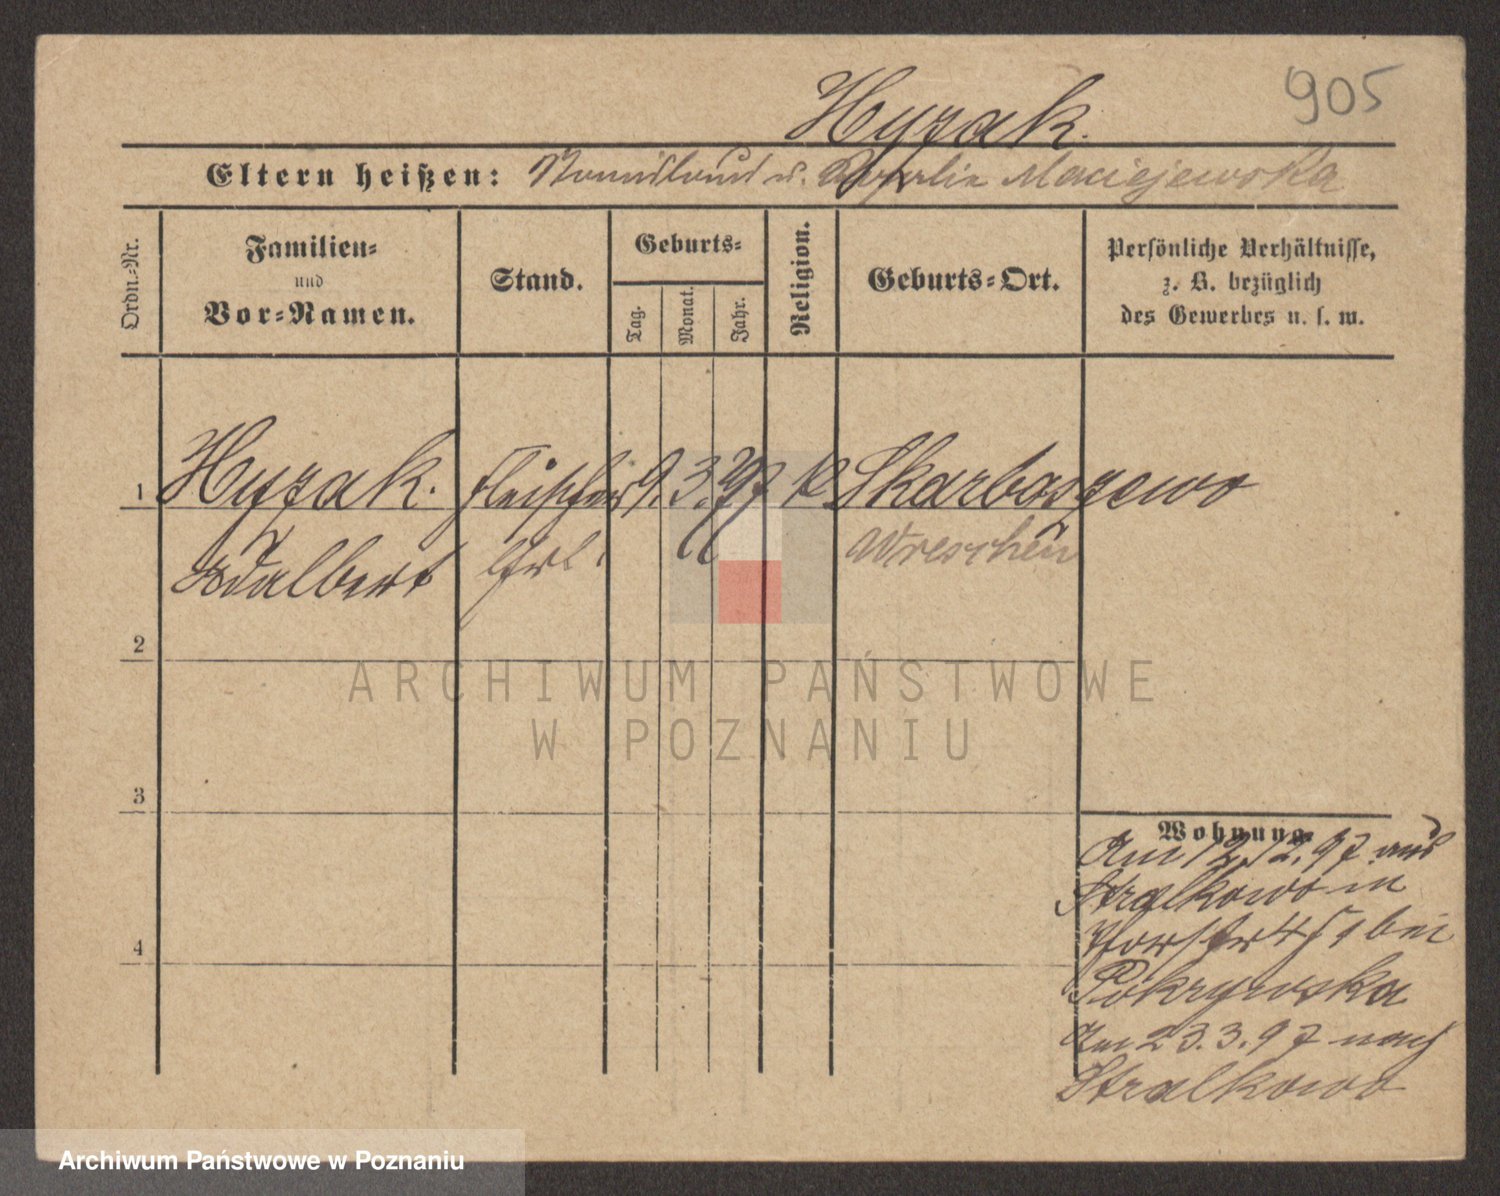 905
Hyzak.
Eltern heißen: u. Maciejewska
Ordn.-Nr.
Familien-
und
Vor-Namen.
Stand.
Geburts-
Tag.
Monat.
Jahr.
Religion.
Geburts-Ort.
Persönliche Verhältnisse,
z. B. bezüglich
des Gewerbes u. s. w.
1 Hyzak. Fleischer 9. 3. K Skarboszewo
Adalbert Wreschen
2
3
4
Wohnung.
Am 12.12.97 aus
Stralkowo in
bei
Pokrywska
Am 23.3.97 nach
Stralkowo
ARCHIWUM PAŃSTWOWE
W POZNANIU
Archiwum Państwowe w Poznaniu